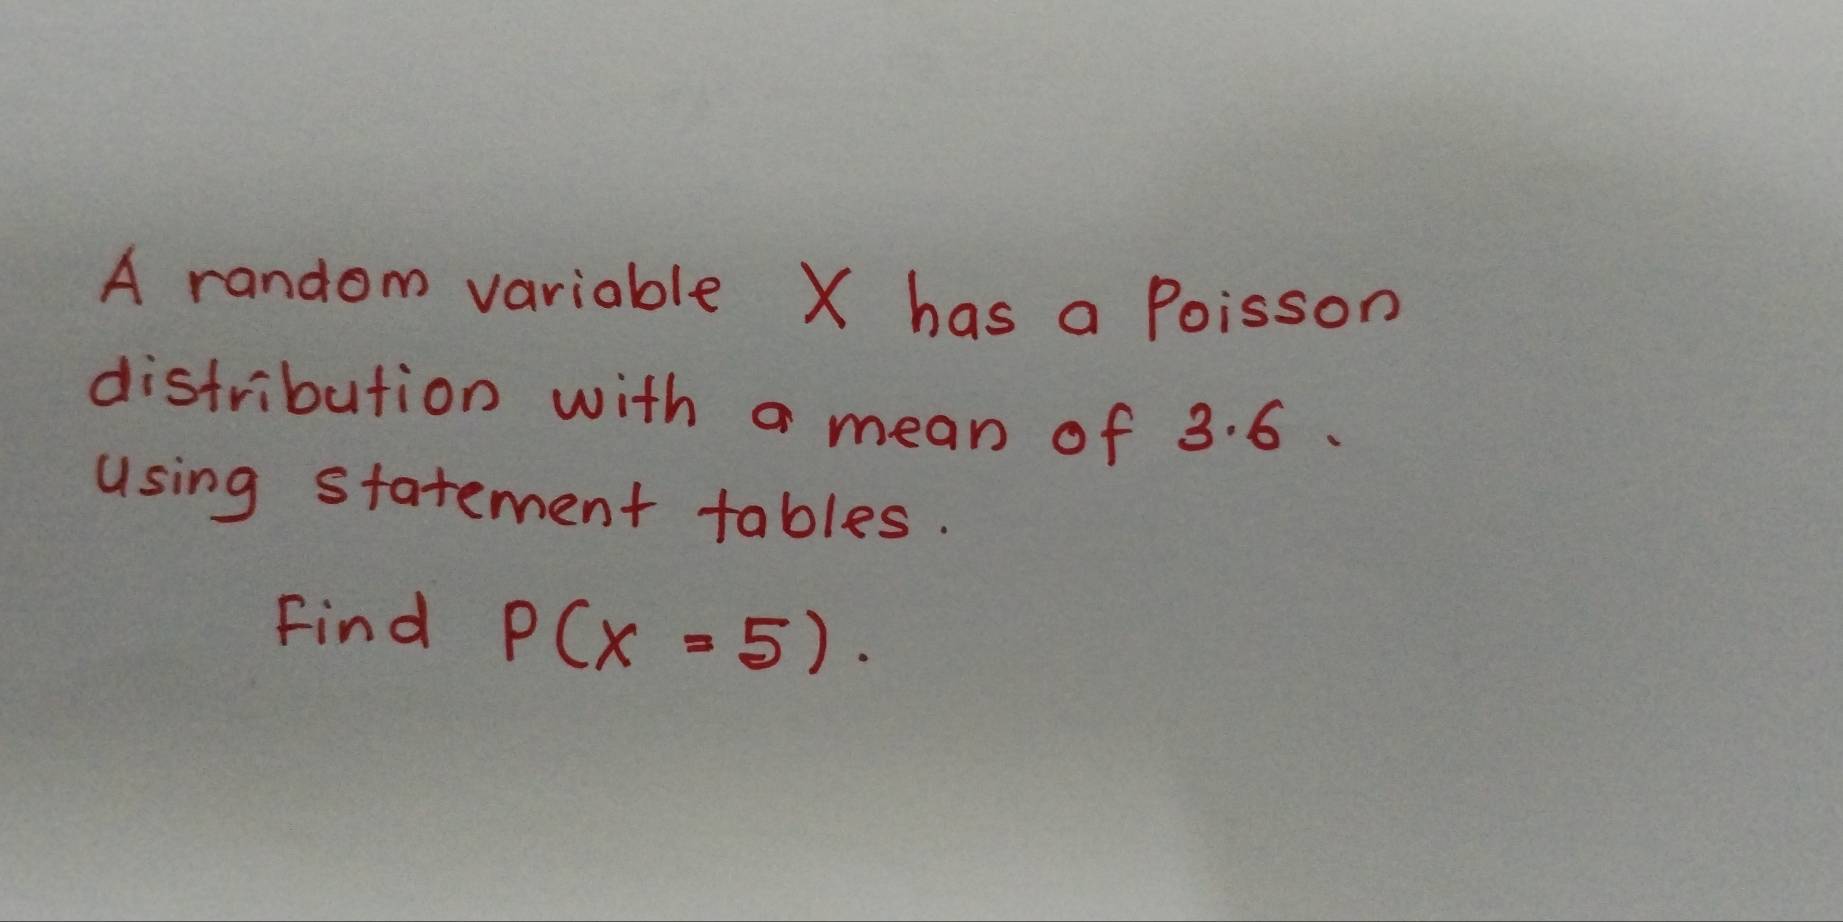 A random variable X has a Poisson
distribution with a mean of 3.6.
Using statement tables.
Find P(X = 5).